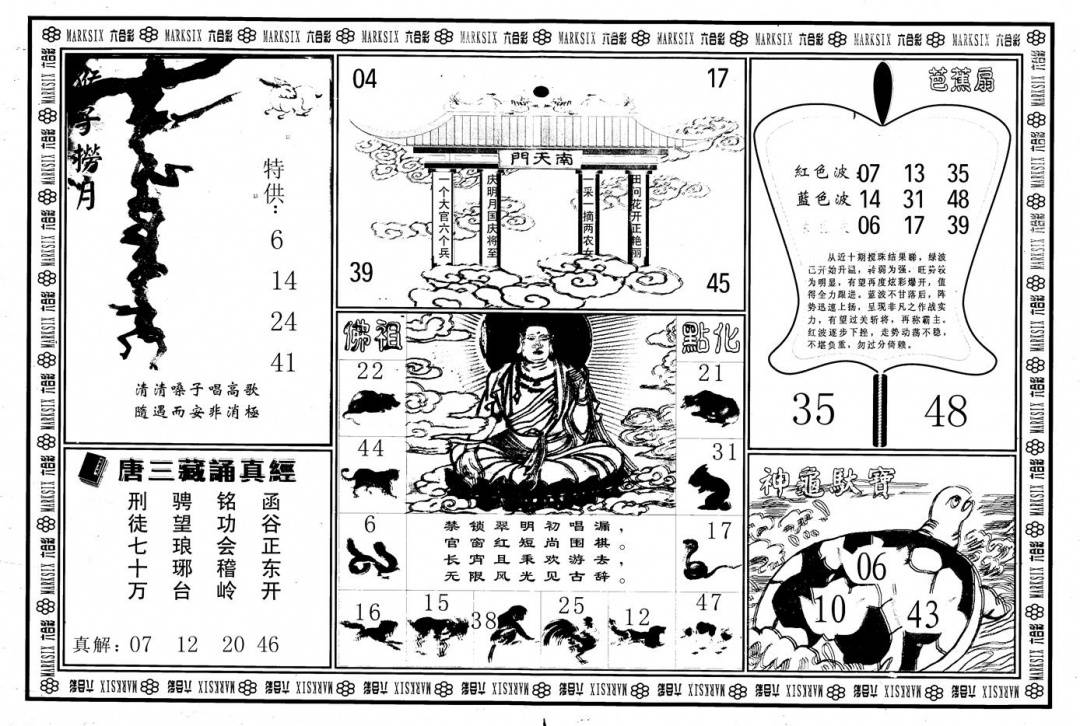 MARKSIX 六合彩 MARKSIX 六合彩 MARKSIX 六合彩 MARKSIX 六合彩 MARKSIX 六合彩 MARKSIX 六合彩 MARKSIX 六合彩 MARKSIX 六合彩 MARKSIX 六合彩 MARKSIX 六合彩
猴子撈月
特供：
6
14
24
41
清清嗓子唱高歌
隨遇而安非消極
唐三藏誦真經
函谷正东开
铭功会稽岭
骋望琅琊台
刑徒七十万
真解：07 12 20 46
04
17
南天門
一个大官六个兵
庆明月国庆将至
一采一摘两农女
田问花开正艳丽
39
45
佛祖
點化
22
21
44
31
6
17
禁锁翠明初唱漏，
官窗红短尚围棋。
长宵且秉欢游去，
无限风光见古辞。
16
15
38
25
12
47
芭蕉扇
紅色波：07 13 35
藍色波 14 31 48
06 17 39
从近十期搅珠结果睇，绿波
已开始升温，转弱为强，旺势较
为明显，有望再度炫彩爆开，值
得全力跟进。蓝波不甘落后，阵
势迅速上扬，呈现非凡之作战实
力，有望过关斩将，再称霸主。
红波逐步下挫，走势动荡不稳，
不堪负重，勿过分倚赖。
35
48
神龜馱寶
06
10
43